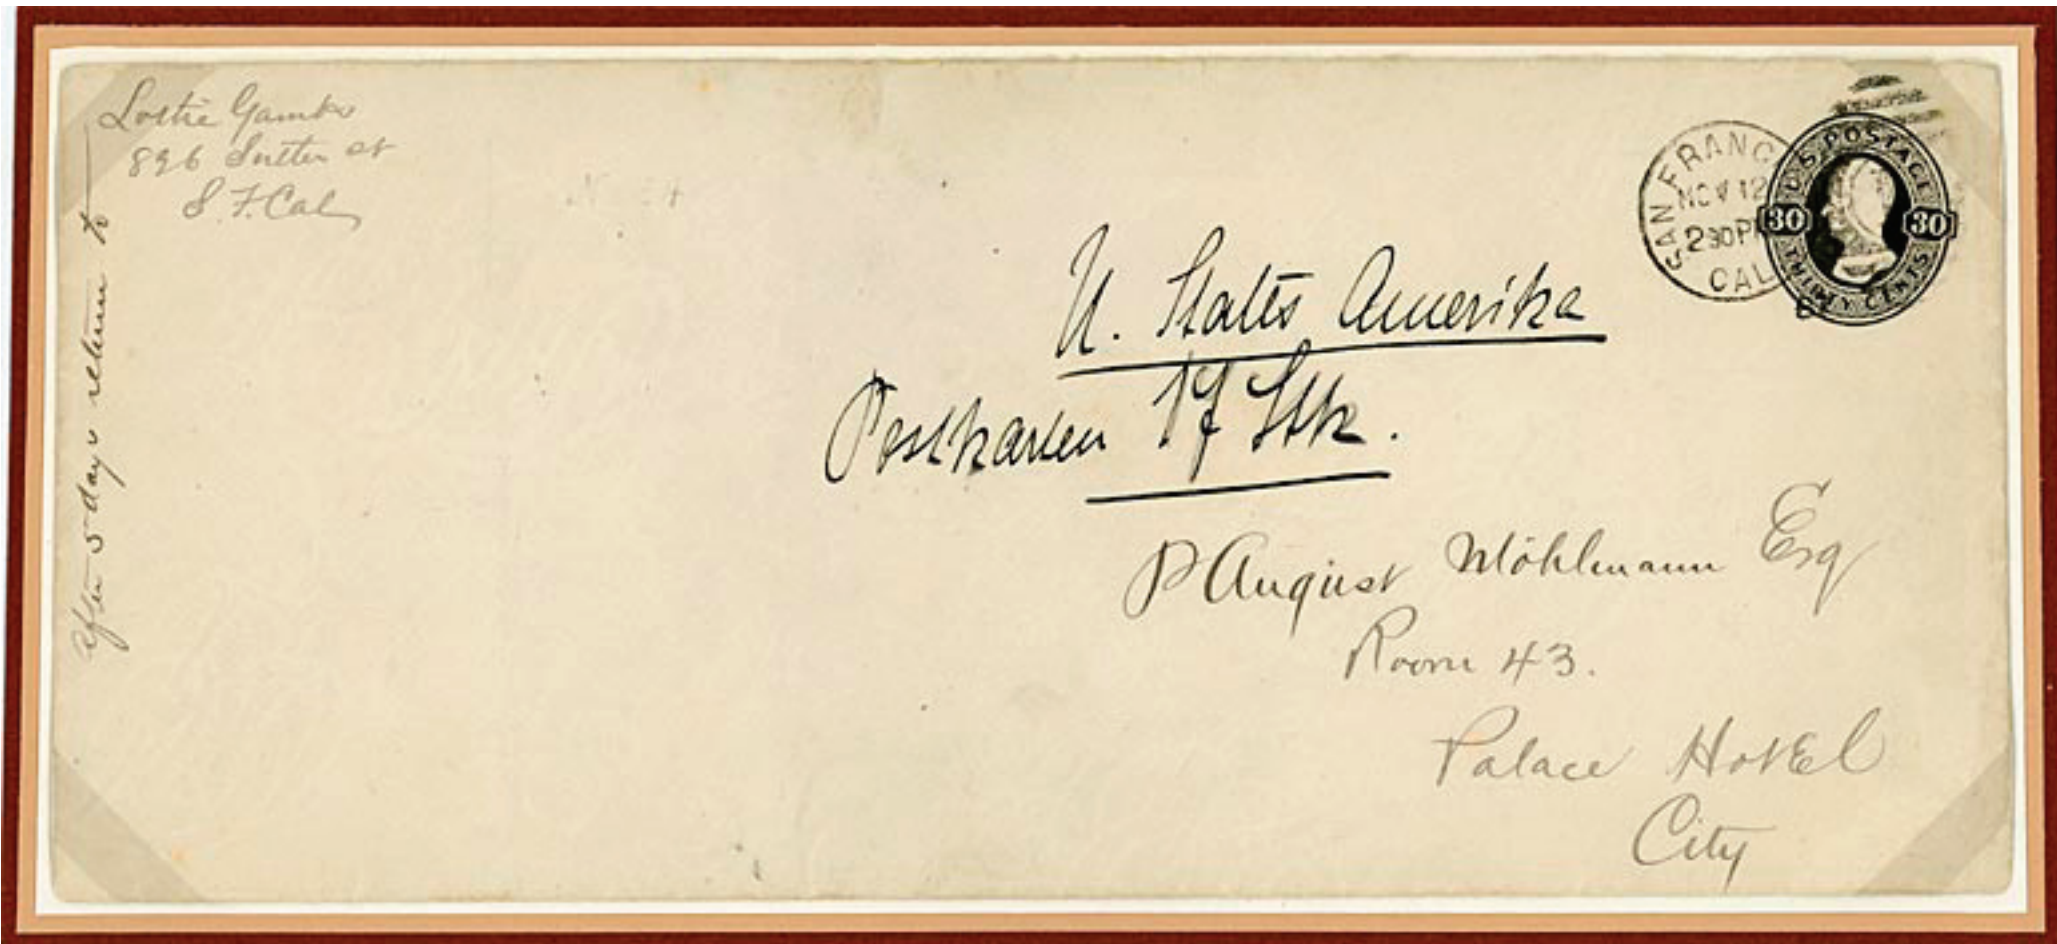 After 5 days return to
896 Sutter st
S. F. Cal
SAN FRANC
NOV 12
230P
CAL
U.S. POSTAGE
30 30
THIRTY CENTS
U. States Amerika
Postkarten 17 Stk.
P August Möhlmann Esq
Room 43.
Palace Hotel
City